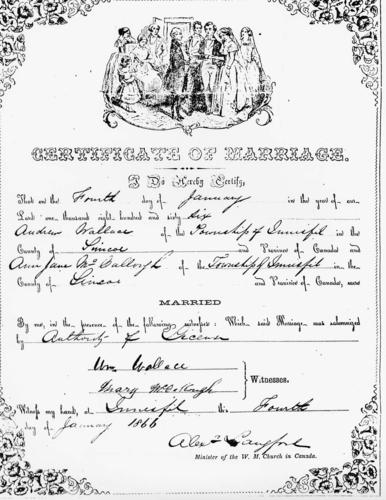 CERTIFICATE OF MARRIAGE.
I Do Hereby Certify,
That on the Fourth day of January in the year of our
Lord one thousand eight hundred and sixty six
Andrew Wallace of the Township of Innisfil in the
County of Simcoe and Province of Canada and
Ann Jane McCullough of the Township of Innisfil in the
County of Simcoe and Province of Canada, were
MARRIED
By me, in the presence of the following witnesses: Which said Marriage was solemnized
by Authority of License
Wm Wallace
Mary McCullough
Witnesses.
Witness my hand, at Innisfil this Fourth
day of January 1866
Alex Langford
Minister of the W. M. Church in Canada.